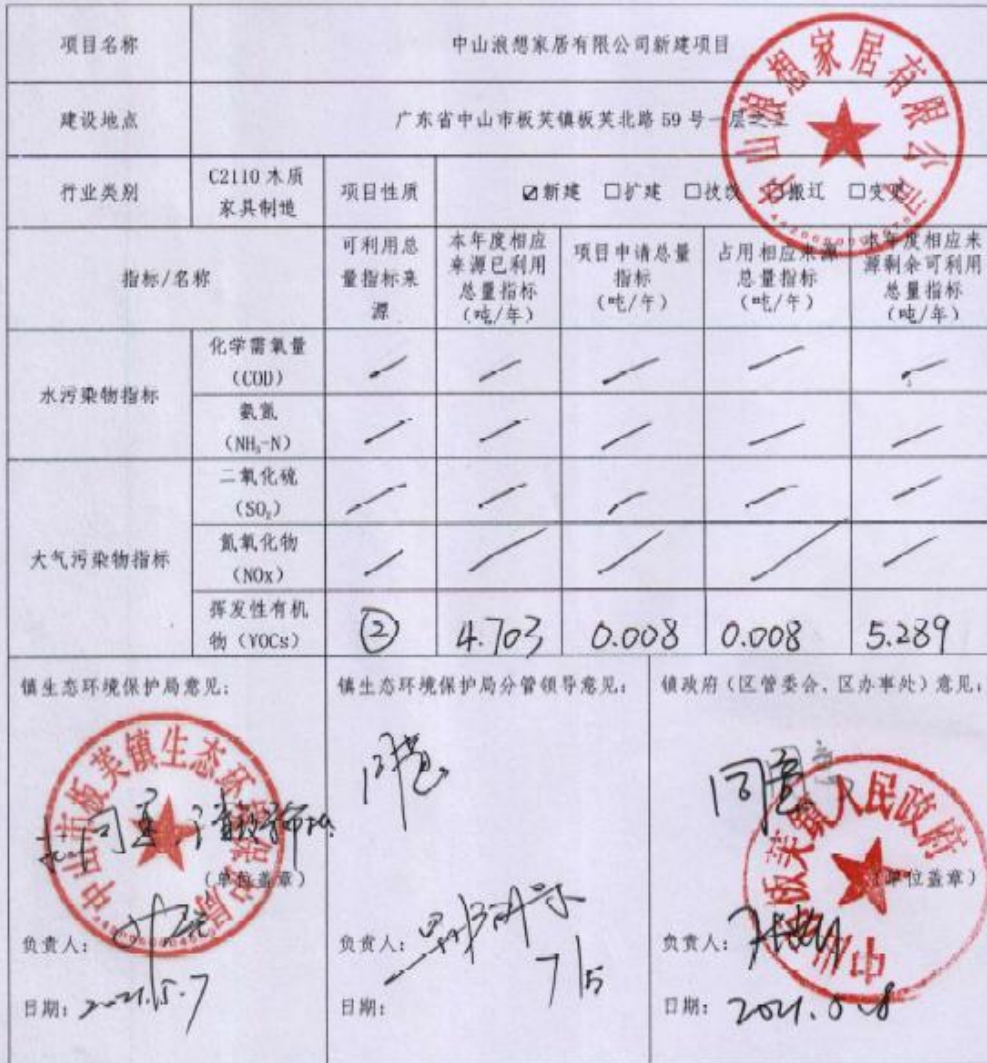 项目名称 中山浪想家居有限公司新建项目
建设地点 广东省中山市板芙镇板芙北路 59 号一层之三
行业类别 C2110 木质家具制造 项目性质 ☑新建 □扩建 □技改 □搬迁 □变更
指标/名称 可利用总量指标来源 本年度相应来源已利用总量指标(吨/年) 项目申请总量指标(吨/年) 占用相应来源总量指标(吨/年) 本年度相应来源剩余可利用总量指标(吨/年)
水污染物指标 化学需氧量(COD) / / / / /
氨氮(NH₃-N) / / / / /
大气污染物指标 二氧化硫(SO₂) / / / / /
氮氧化物(NOx) / / / / /
挥发性有机物(VOCs) ② 4.703 0.008 0.008 5.289
中山浪想家居有限公司
镇生态环境保护局意见:
中山市板芙镇生态环境保护局
同意
(单位盖章)
负责人:
日期: 2021.5.7
镇生态环境保护局分管领导意见:
同意
负责人:
7/5
日期:
镇政府(区管委会、区办事处)意见:
同意
中山市板芙镇人民政府
(单位盖章)
负责人:
日期: 2021.5.8